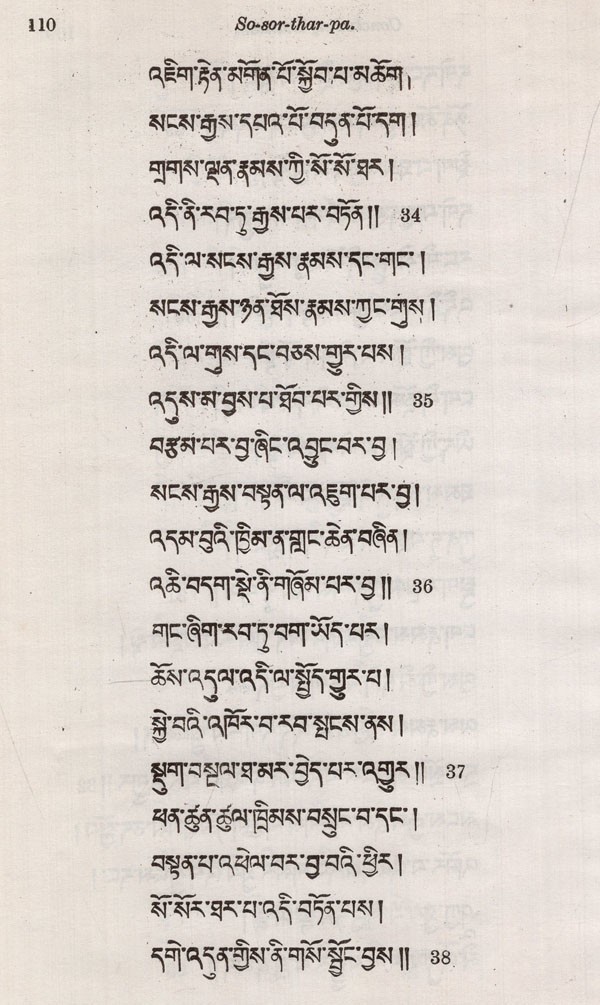 110 So-sor-thar-pa.
འཇིག་རྟེན་མགོན་པོ་སྐྱོབ་པ་མཆོག །
སངས་རྒྱས་དཔའ་པོ་བདུན་པོ་དག །
གྲགས་ལྡན་རྣམས་ཀྱི་སོ་སོ་ཐར །
འདི་ནི་རབ་ཏུ་རྒྱས་པར་བཏོན །། 34
འདི་ལ་སངས་རྒྱས་རྣམས་དང་གང་ །
སངས་རྒྱས་ཉན་ཐོས་རྣམས་ཀྱང་གུས །
འདི་ལ་གུས་དང་བཅས་གྱུར་པས །
འདུས་མ་བྱས་པ་ཐོབ་པར་གྱིས །། 35
བརྩམ་པར་བྱ་ཞིང་འབྱུང་བར་བྱ །
སངས་རྒྱས་བསྟན་ལ་འཇུག་པར་བྱ །
འདམ་བུའི་ཁྱིམ་ན་གླང་ཆེན་བཞིན །
འཆི་བདག་སྡེ་ནི་གཞོམ་པར་བྱ །། 36
གང་ཞིག་རབ་ཏུ་བག་ཡོད་པར །
ཆོས་འདུལ་འདི་ལ་སྤྱོད་གྱུར་པ །
སྐྱེ་བའི་འཁོར་བ་རབ་སྤངས་ནས །
སྡུག་བསྔལ་ཐ་མར་བྱེད་པར་འགྱུར །། 37
ཕན་ཚུན་ཚུལ་ཁྲིམས་བསྲུང་བ་དང་ །
བསྟན་པ་འཕེལ་བར་བྱ་བའི་ཕྱིར །
སོ་སོར་ཐར་པ་འདི་བཏོན་པས །
དགེ་འདུན་གྱིས་ནི་གསོ་སྦྱོང་བྱས །། 38